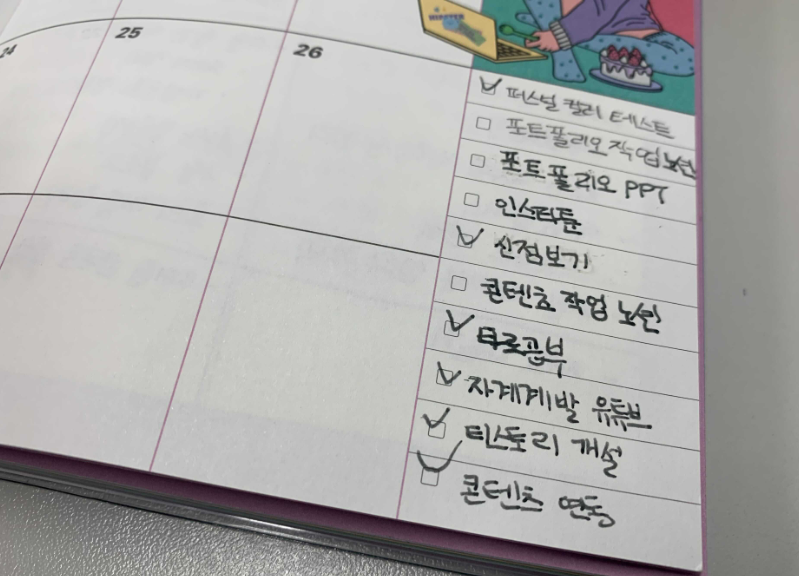 24
25
26
퍼스널 컬러 테스트
포트폴리오 작업 노션
포트폴리오 PPT
인스타툰
신점보기
콘텐츠 작업 노션
타로공부
자계계발 유튜브
티스토리 개설
콘텐츠 연동